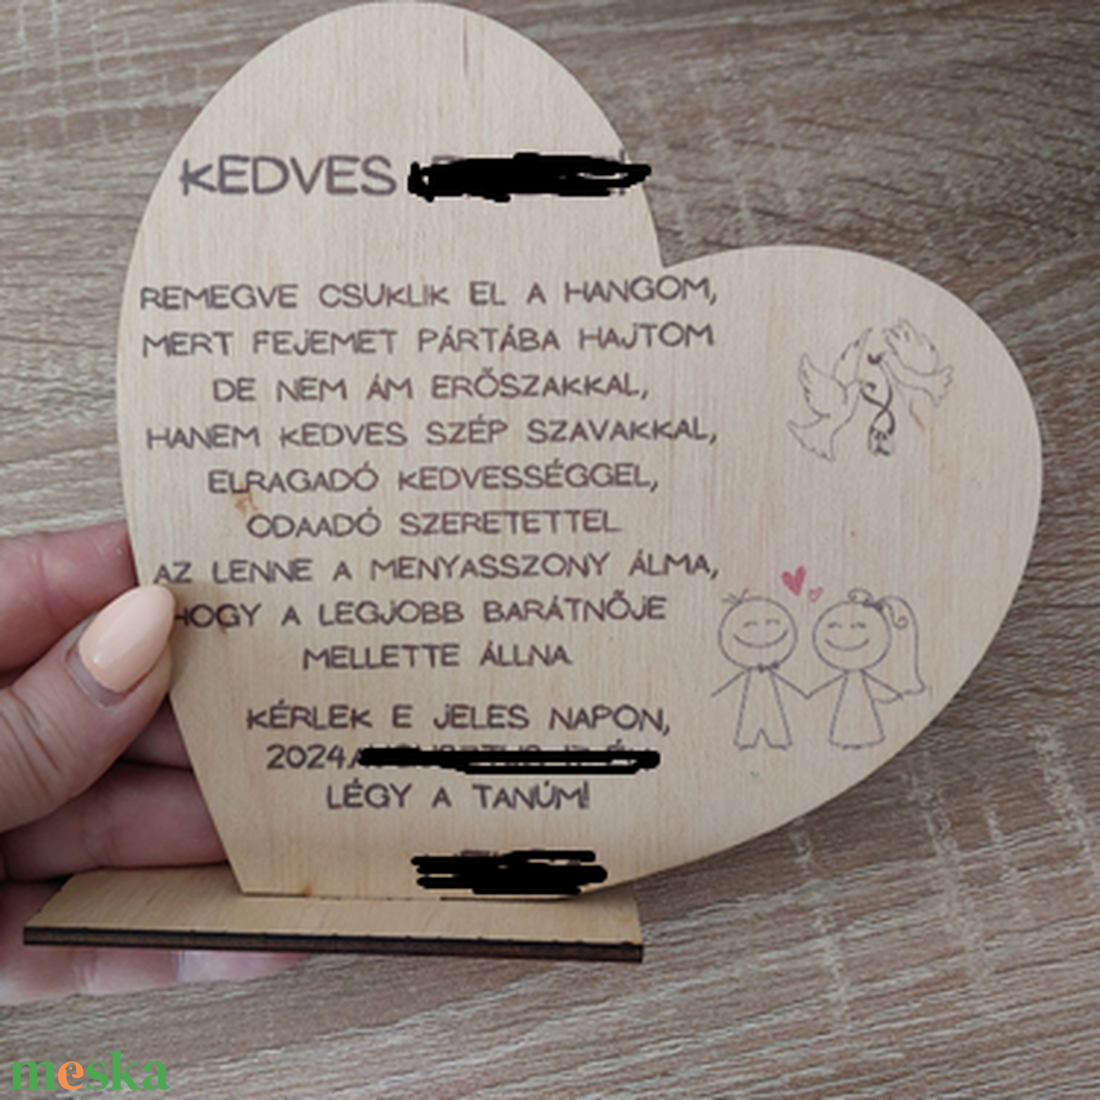 KEDVES
REMEGVE CSUKLIK EL A HANGOM,
MERT FEJEMET PÁRTÁBA HAJTOM
DE NEM ÁM ERŐSZAKKAL,
HANEM KEDVES SZÉP SZAVAKKAL,
ELRAGADÓ KEDVESSÉGGEL,
ODAADÓ SZERETETTEL
AZ LENNE A MENYASSZONY ÁLMA,
HOGY A LEGJOBB BARÁTNŐJE
MELLETTE ÁLLNA
KÉRLEK E JELES NAPON,
2024.
LÉGY A TANÚM!
meska